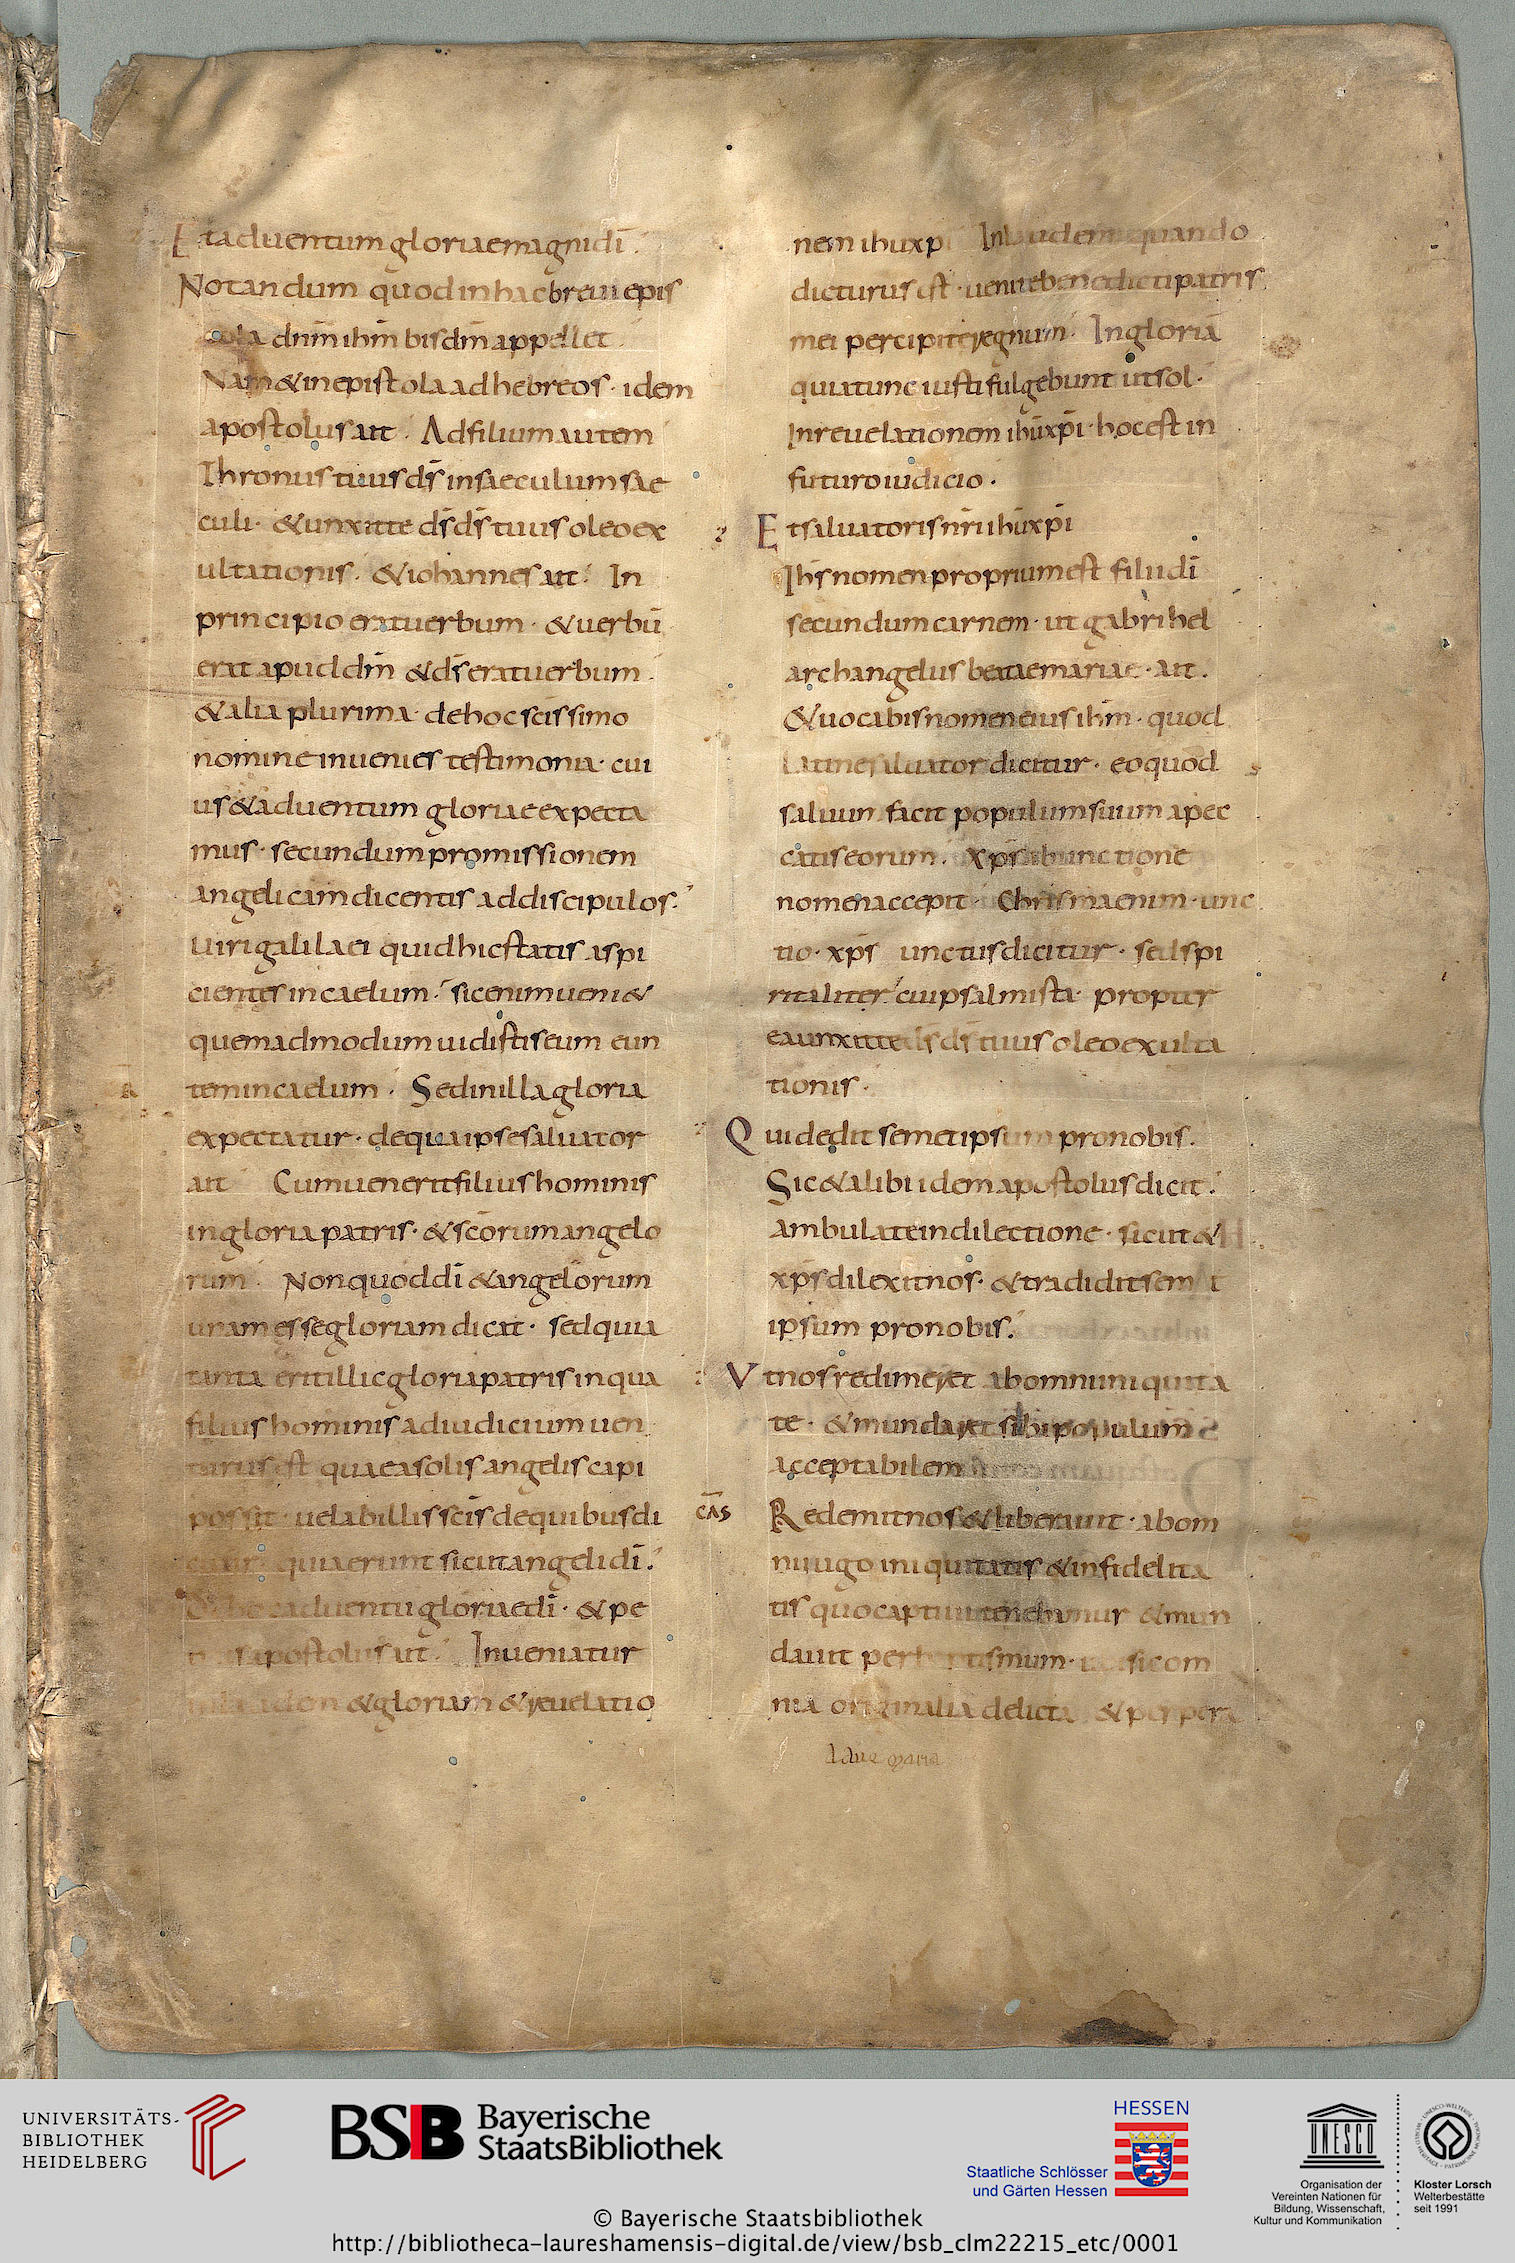 Et aduentum gloriae magni dī.
Notandum quod in hac breui epis
tola dn̄m ihm̄ bis dm̄ appellet
Nam & in epistola ad hebreos · idem
apostolus ait. Ad filium autem
Thronus tuus ds̄ in saeculum sae
culi · & unxit te ds̄ ds̄ tuus oleo ex
ultationis. & iohannes ait. In
principio erat uerbum · & uerbū
erat apud dm̄ & ds̄ erat uerbum.
& alia plurima · de hoc sc̄issimo
nomine inuenies testimonia · cui
us & aduentum gloriae expecta
mus · secundum promissionem
angelicam dicentis ad discipulos.
Uiri galilaei quid hic statis aspi
cientes in caelum. sic enim ueni&
quemadmodum uidistis eum eun
tem in caelum. Sed in illa gloria
expectatur · de qua ipse saluator
ait Cum uenerit filius hominis
in gloria patris · & sc̄orum angelo
rum. Non quod dī & angelorum
unam esse gloriam dicat · sed quia
tanta erit illic gloria patris in qua
filius hominis ad iudicium uen
turus est quae a solis angelis capi
possit · uel ab illis sc̄is de quibus di
citur · quia erunt sicut angeli dī.
De hoc aduentu gloriae dī · & pe
trus apostolus ait. Inueniatur
in laudem & gloriam & reuelatio
nem ihu xp̄i In laudem quando
dicturus est · uenite benedicti patris
mei percipite regnum. In gloriā
quia tunc iusti fulgebunt ut sol.
In reuelationem ihū xp̄i · hoc est in
futuro iudicio.
Et saluatoris nr̄i ihū xp̄i
Ihs̄ nomen proprium est filii dī
secundum carnem · ut gabrihel
archangelus beatae mariae · ait.
& uocabis nomen eius ihm̄ · quod
Latine saluator dicitur · eo quod
saluum facit populum suum a pec
catis eorum. xp̄s ab unctione
nomen accepit Chrisma enim · unc
tio · xp̄s unctus dicitur · sed spi
ritaliter cui psalmista · propter
ea unxit te ds̄ ds̄ tuus oleo exulta
tionis.
Qui dedit semetipsum pro nobis.
Sic & alibi idem apostolus dicit.
ambulate in dilectione · sicut &
xp̄s dilexit nos · & tradidit sem&
ipsum pro nobis.
Vt nos redimeret ab omni iniquita
te · & mundaret sibi populum
acceptabilem
CĀS Redemit nos & liberauit · ab om
ni iugo iniquitatis & infidelita
tis quo captiui tenebamur & mun
dauit per baptismum · ut sic om
nia originalia delicta & per pera
aue maria
UNIVERSITÄTS-
BIBLIOTHEK
HEIDELBERG
BSB Bayerische
StaatsBibliothek
HESSEN
Staatliche Schlösser
und Gärten Hessen
UNESCO
Organisation der
Vereinten Nationen für
Bildung, Wissenschaft,
Kultur und Kommunikation
Kloster Lorsch
Welterbestätte
seit 1991
© Bayerische Staatsbibliothek
http://bibliotheca-laureshamensis-digital.de/view/bsb_clm22215_etc/0001